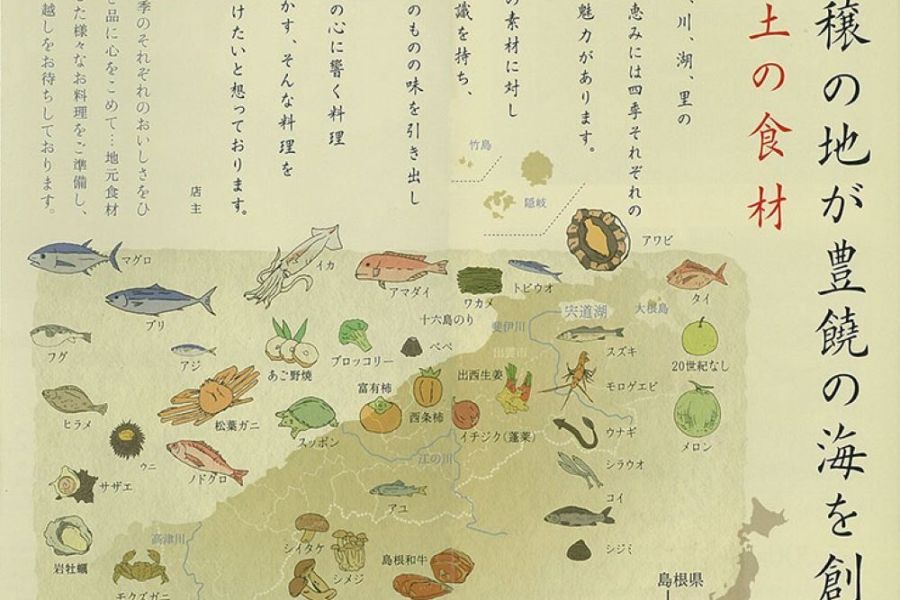 穣の地が豊饒の海を創
土の食材
、川、湖、里の
恵みには四季それぞれの
魅力があります。
の素材に対し
識を持ち、
のものの味を引き出し
の心に響く料理
かす、そんな料理を
けたいと想っております。
店主
季のそれぞれのおいしさをひ
品に心をこめて…地元食材
た様々なお料理をご準備し、
越しをお待ちしております。
竹島
隠岐
アワビ
マグロ
イカ
アマダイ
ワカメ
トビウオ
タイ
ブリ
十六島のり
斐伊川
宍道湖
大根島
フグ
アジ
あご野焼
ブロッコリー
べべ
出雲市
スズキ
20世紀なし
富有柿
西条柿
出西生姜
モロゲエビ
ヒラメ
松葉ガニ
スッポン
イチジク(蓬莱)
ウナギ
メロン
ウニ
ノドグロ
江の川
シラウオ
サザエ
アユ
コイ
岩牡蠣
高津川
シイタケ
シメジ
島根和牛
シジミ
モクズガニ
島根県